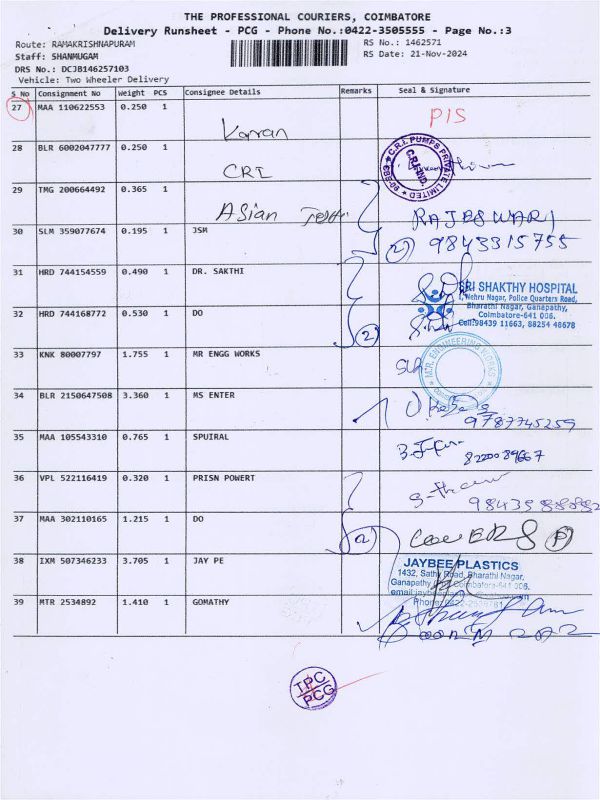 THE PROFESSIONAL COURIERS, COIMBATORE
Delivery Runsheet - PCG - Phone No.:0422-3505555 - Page No.:3
Route: RAMAKRISHNAPURAM
RS No.: 1462571
Staff: SHANMUGAM
RS Date: 21-Nov-2024
DRS No.: DCJB146257103
Vehicle: Two Wheeler Delivery
S No Consignment No Weight PCS Consignee Details Remarks Seal & Signature
27 MAA 110622553 0.250 1 PIS
28 BLR 6002047777 0.250 1 CRI
C.R.I. PUMPS PRIVATE LIMITED
29 TMG 200664492 0.365 1 Asian
RAJESWARI
30 SLM 359077674 0.195 1 JSM (2) 9843315755
31 HRD 744154559 0.490 1 DR. SAKTHI
SRI SHAKTHY HOSPITAL
1, Nehru Nagar, Police Quarters Road,
Bharathi Nagar, Ganapathy,
Coimbatore-641 006.
Cell:98439 11663, 88254 48678
32 HRD 744168772 0.530 1 DO (2)
33 KNK 80007797 1.755 1 MR ENGG WORKS
M.R. ENGINEERING WORKS
34 BLR 2150647508 3.360 1 MS ENTER
9787745259
35 MAA 105543310 0.765 1 SPUIRAL
8220089667
36 VPL 522116419 0.320 1 PRISN POWERT
37 MAA 302110165 1.215 1 DO
38 IXM 507346233 3.705 1 JAY PE
JAYBEE PLASTICS
1432, Sathy Road, Bharathi Nagar,
Ganapathy Coimbatore-641 006.
39 MTR 2534892 1.410 1 GOMATHY
TPC
PCG